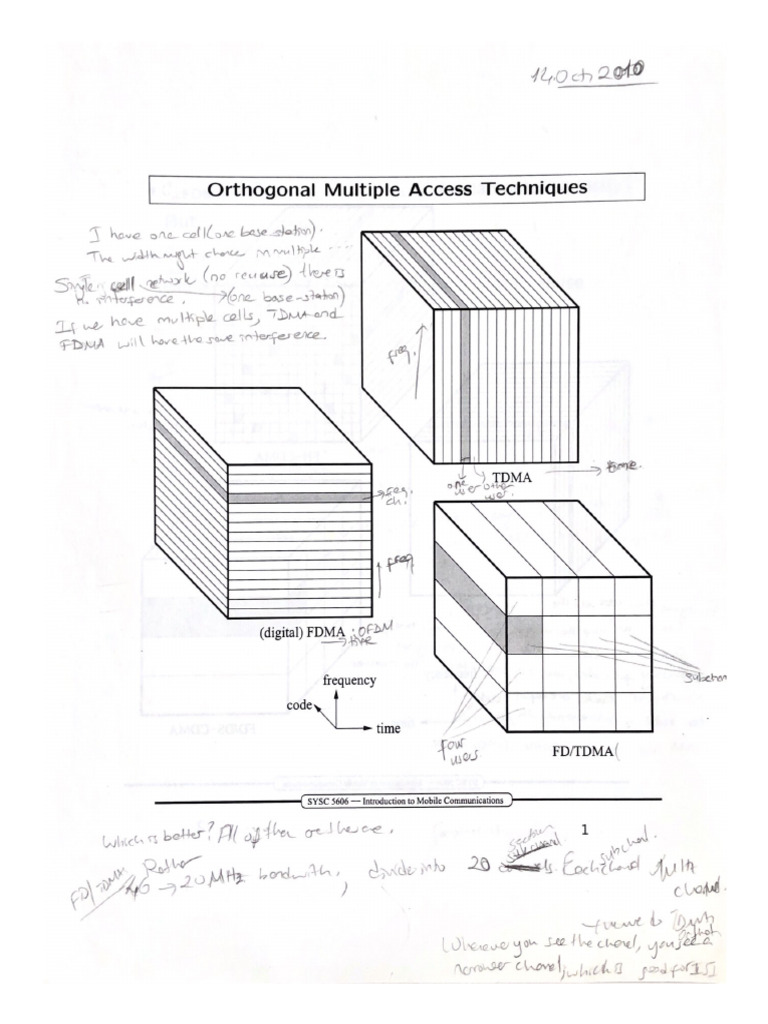 14 Oct 2010
Orthogonal Multiple Access Techniques
I have one cell (one base station).
The width might chance in multiple ....
cell network (no reuse) there is
no interference. → (one base-station)
If we have multiple cells, TDMA and
FDMA will have the same interference.
freq.
TDMA
→ time.
one user
other user.
freq. ch.
freq
(digital) FDMA : OFDM
→ time
frequency
code
time
four users
FD/TDMA
SYSC 5606 — Introduction to Mobile Communications
1
Which is better? All of them are the same.
FD/TDMA Rather
4G → 20 MHz bandwith, divide into 20 subchannel
channel.
Wherever you see the channel, you see a
narrower channel, which is good for ISI